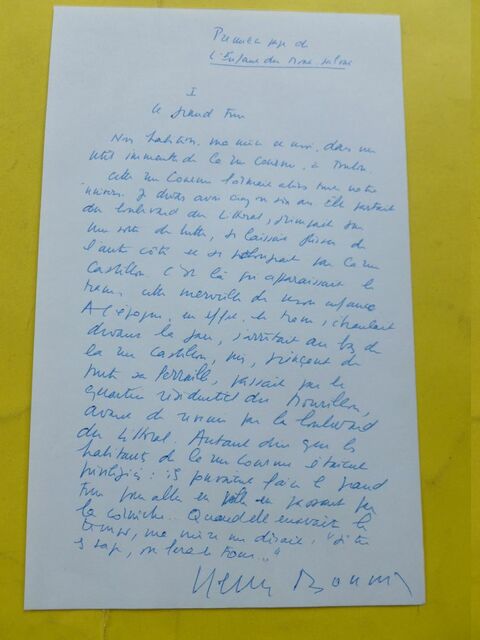 Première page de
L'Enfant du Mone-
I
Le grand Tour
Nous habitions, ma mère et moi, dans un
petit immeuble de la rue Courue, à Toulon.
Cette rue Courue formait alors tout notre
univers. Je devais avoir cinq ou six ans. Elle partait
du boulevard du Littoral, grimpait sur
une sorte de butte, se laissait glisser de
l'autre côté et se prolongeait par la rue
Castillon. C'est là qu'apparaissait le
tram, cette merveille de mon enfance
A l'époque, en effet, le tram, circulant
devant la, s'arrêtait au bas de
la rue Castillon, puis, grinçant de
toute sa ferraille, passait par le
quartier résidentiel du Mourillon,
avant de revenir par le boulevard
du Littoral. Autant dire que les
habitants de la rue Courue étaient
privilégiés : ils pouvaient faire le grand
Tour pour aller en ville en passant par
la corniche. Quand elle en avait le
temps, ma mère me disait, "Si tu
es sage, on fera le Tour."